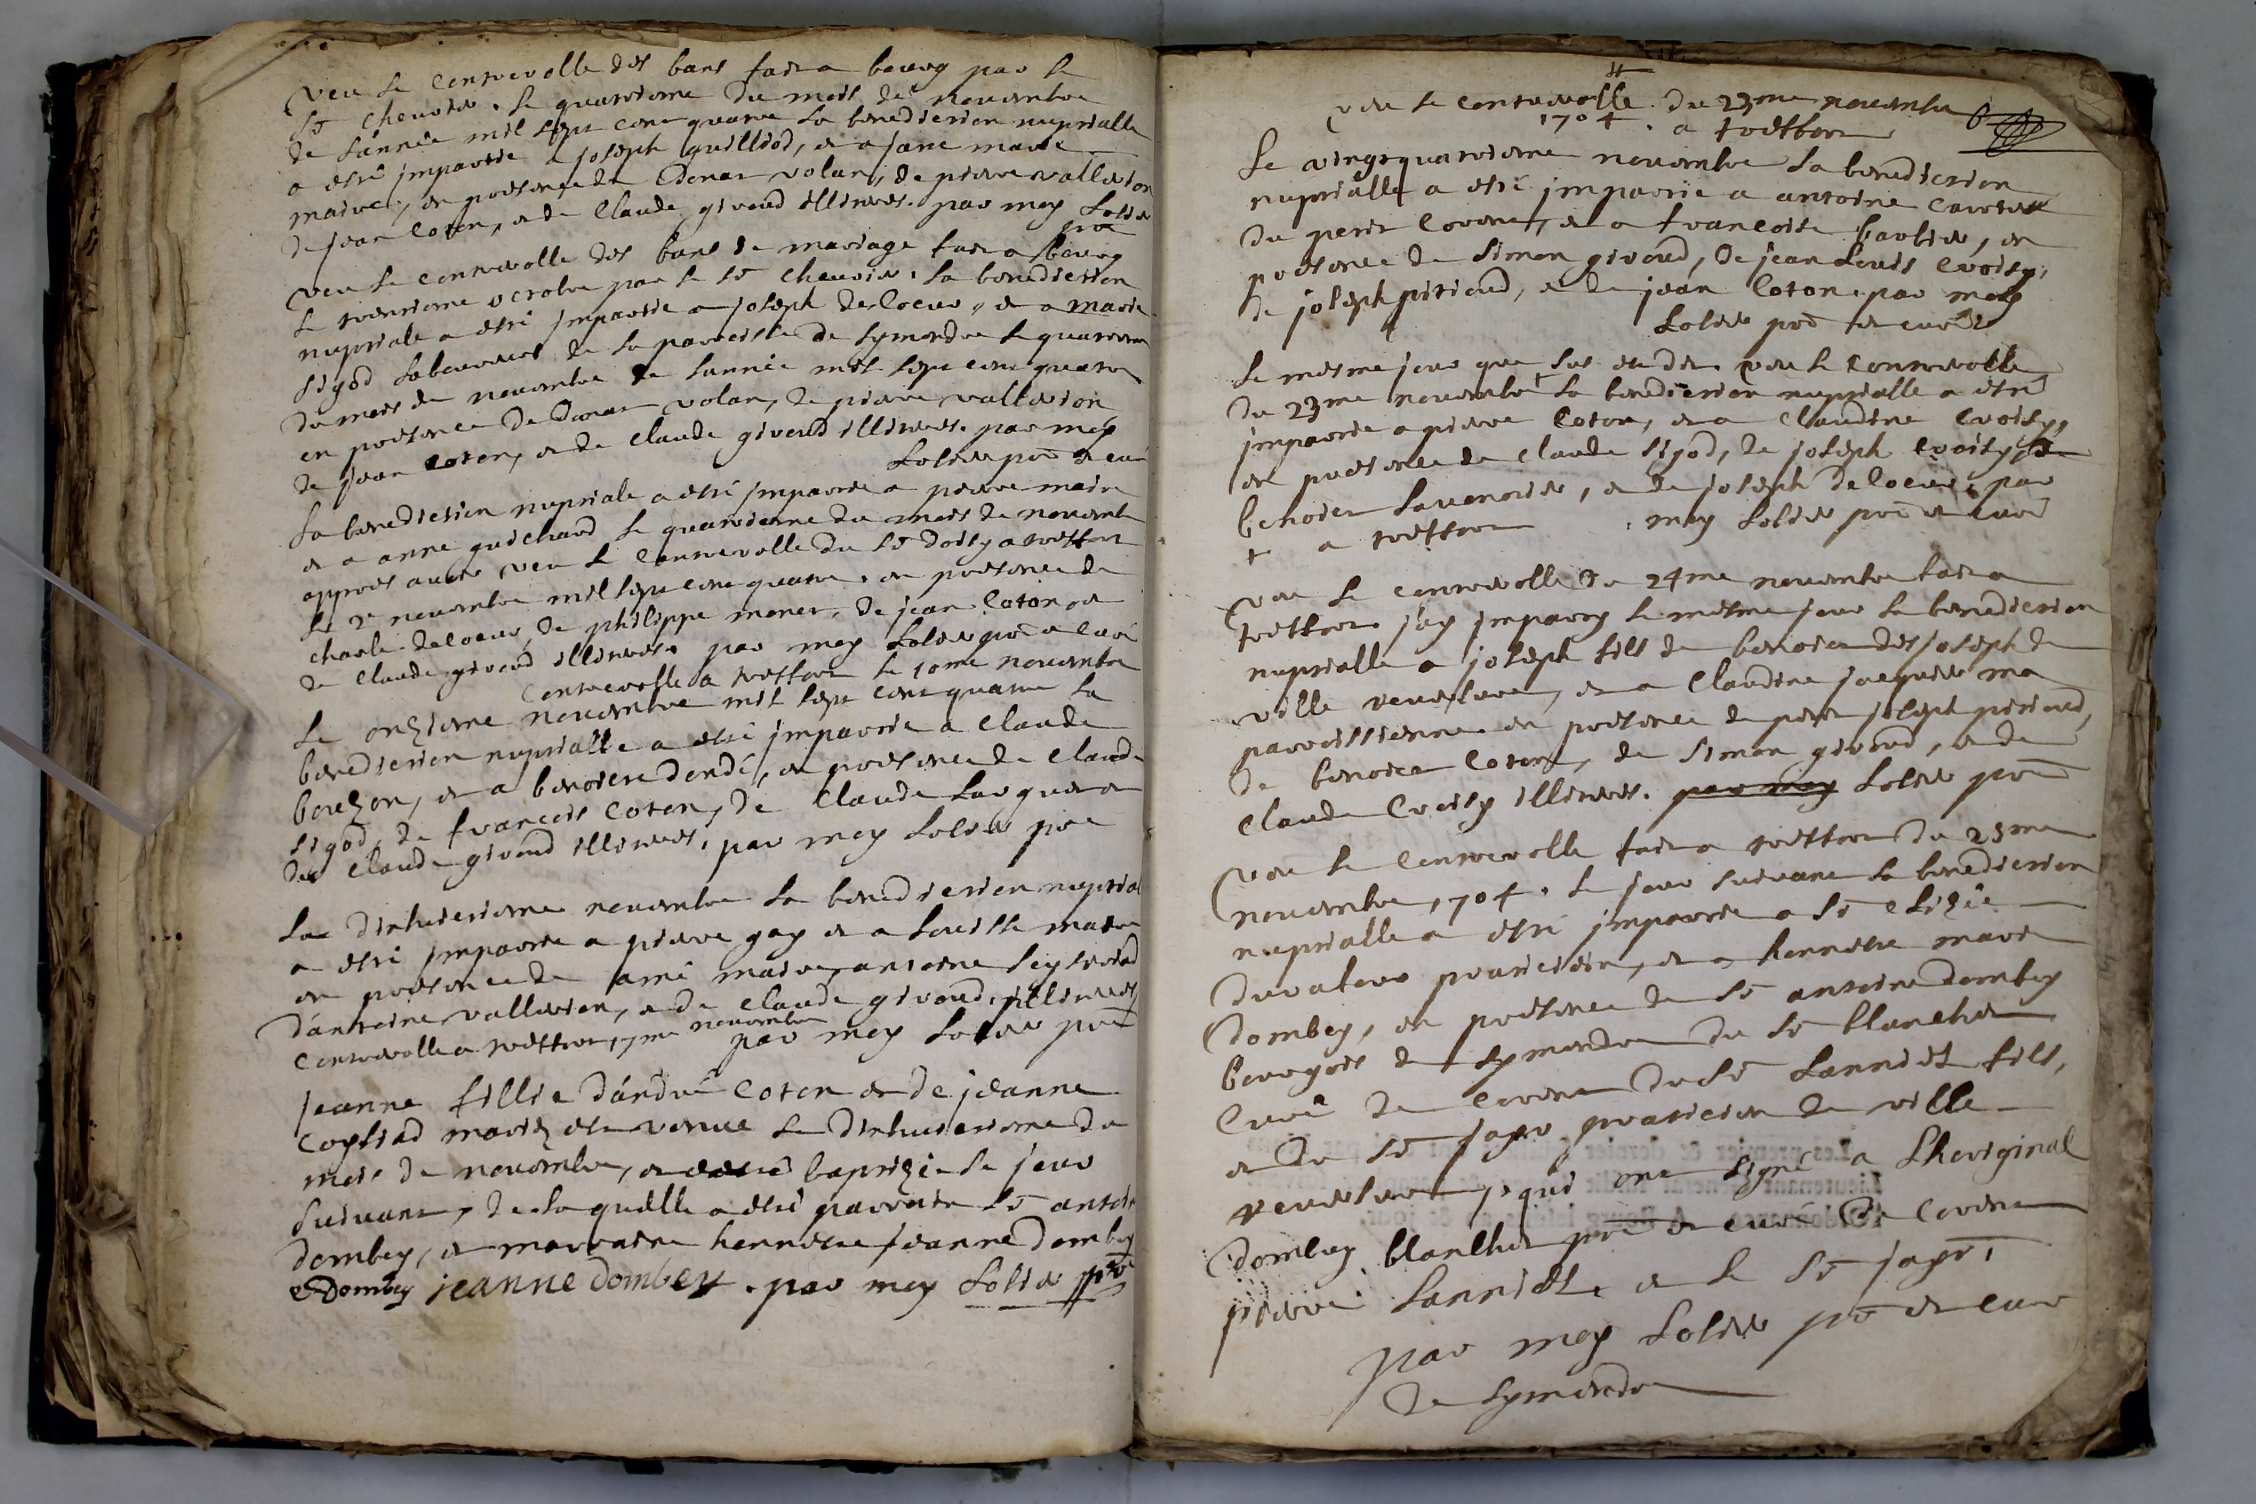 veu le contrerolle des bans fait a bourg par le
sr chevrier. le quatrieme du mois de novembre
de lannée mil sept cent quatre la benediction nuptialle
a esté impartie a joseph guilliod, et a jane marie
maire, en presence de Donat volan, de pierre vallerion
de jean Coton, et de Claude giroud illiteres. par moy Solier
pre
veu le contrerolle des bans de mariage fait a bourg
le trentieme octobre par le sr chevrier. la benediction
nuptiale a esté impartie a joseph Delocur, et a marie
sigod laboureurs de la parroisse de symandre le quatrieme
du mois de novembre de lannée mil sept cent quatre
en presence de Donat volan, de pierre vallerion
de jean Coton, et de Claude giroud illiteres. par moy
Solier pre et curé
La benediction nuptiale a esté impartie a pierre maire
et a anne guichard le quatrieme du mois de novembre
appres avoir veu le Contrerolle du sr Doisy a treffort
le 2e novembre mil sept cent quatre. en presence de
charle delocur, de philippe monet, de jean Coton et
de Claude giroud illiteres. par moy Solier pre et curé
Contrerolle a treffort le 10me novembre
Le onzieme novembre mil sept cent quatre la
benediction nuptialle a esté impartie a Claude
bouzon, et a benoiste dondé, en presence de Claude
sigod, de francois Coton, de Claude Larguet et
de Claude giroud illiteres. par moy Solier pre
Le dixhuictieme novembre la benediction nuptial
a esté impartie a pierre gay et a Louisse maire
en presence de amé maire, antoine
d'antoine vallerion, et de Claude giroud. illiteres
Contrerolle a treffort 17me novembre par moy Solier pre
Jeanne fillie d'andré Coton et de jeanne
Coyliad mariez est venue le dixhuictieme du
mois de novembre, et baptizée le jour
suivant, de laquelle a esté parrain sr antoine
dombey, et marraine hennette jeanne dombey
Dombey jeanne Dombey. par moy Solier pre
veu le contrerolle du 23me novembre
1704. a treffort
Le vingtquatrieme novembre la benediction
nuptialle a esté impartie a antoine Cartier
du petit Corent, et a francoise barbier, en
presence de simon giroud, de jean Louis Croisy,
de joseph pitioud, et de jean Coton. par moy
Solier pre et curé
Le mesme jour que sus est dit. veu le Contrerolle
du 23me novembre + la benediction nuptialle a esté
impartie a pierre Coton, et a Claudine Croisy,
en presence de Claude sigod, de joseph Croisy, de
benoict Lavenoier, et de joseph Delocur. par
+ a treffort . moy Solier pre et curé
veu le contrerolle du 24me novembre fait a
treffort. jay imparty le mesme jour la benediction
nuptialle a joseph fils de benoict desjoseph de
ville reversure, et a Claudine jacquier ma
parroissienne en presence de petit joseph pitioud,
de benoict Coton, de simon giroud, et de
Claude Croisy illiteres. par moy Solier pre
veu le Contrerolle fait a treffort du 25me
novembre 1704. le jour suivant la benediction
nuptialle a esté impartie a sr Elizée
Duvaleur praticien, et a hennette marie
Dombey, en presence de sr antoine dombey
bourgois de symandre du sr blanchet
Curé de Corent du sr Lanniet fils,
et du sr jayr praticien de ville
reversure, qui ont signé a Lhoriginal
Dombey. blanchet pre et curé de Corent
pierre Lanniet. et le sr jayr,
par moy Solier pre et curé
de symandre